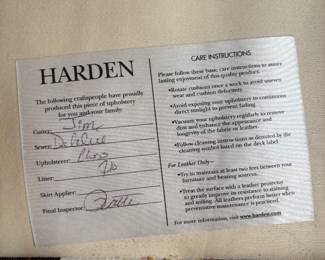 HARDEN
The following craftspeople have proudly
produced this piece of upholstery
for you and your family:
Cutter: Jim
Sewer: Debbie
Upholsterer:
Liner:
Skirt Applier:
Final Inspector:
CARE INSTRUCTIONS
Please follow these basic care instructions to assure
lasting enjoyment of this quality product.
•Rotate cushions once a week to avoid uneven
wear and cushion deformity.
•Avoid exposing your upholstery to continuous
direct sunlight to prevent fading.
•Vacuum your upholstery regularly to remove
dust and enhance the appearance and
longevity of the fabric or leather.
•Follow cleaning instructions as denoted by the
cleaning symbol listed on the deck label.
For Leather Only—
•Try to maintain at least two feet between your
furniture and heating sources.
•Treat the surface with a leather protector
to greatly improve its resistance to staining
and soiling. All leathers perform better when
preventative maintenance is practiced.
For more information, visit www.harden.com.